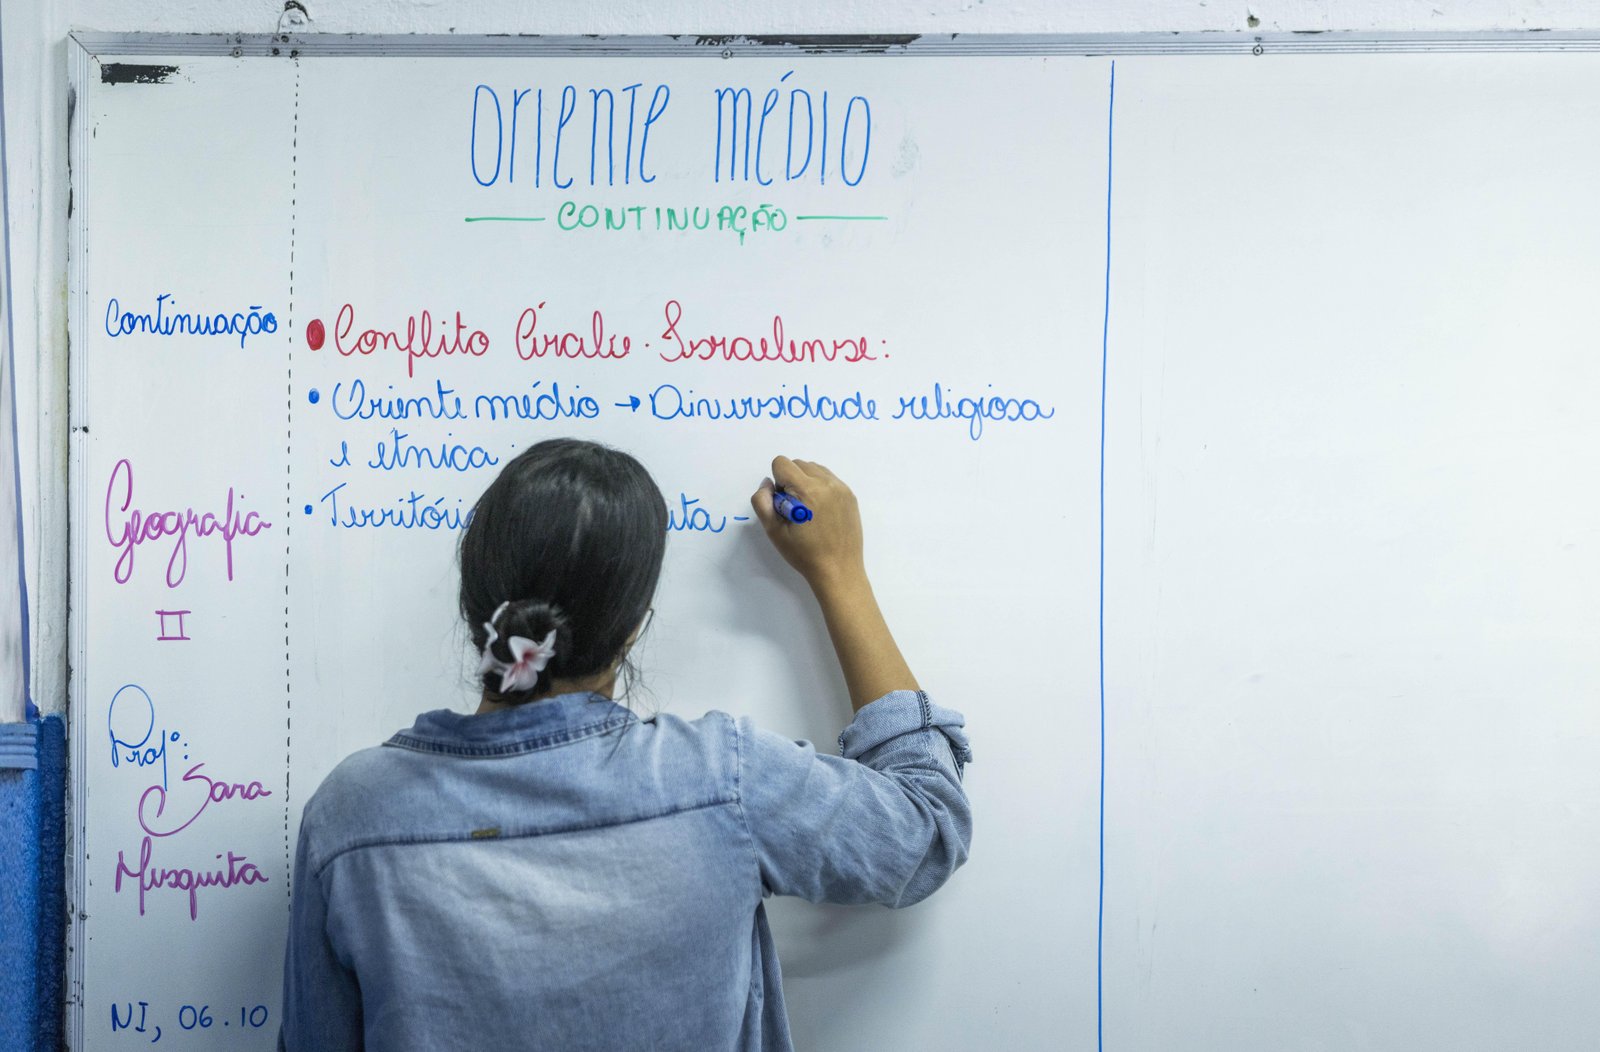 ORIENTE MÉDIO
CONTINUAÇÃO
Continuação
Geografia
II
Profº:
Sara
Mesquita
NI, 06.10
• Conflito Árabe·Israelense:
• Oriente médio → Diversidade religiosa
e étnica
• –